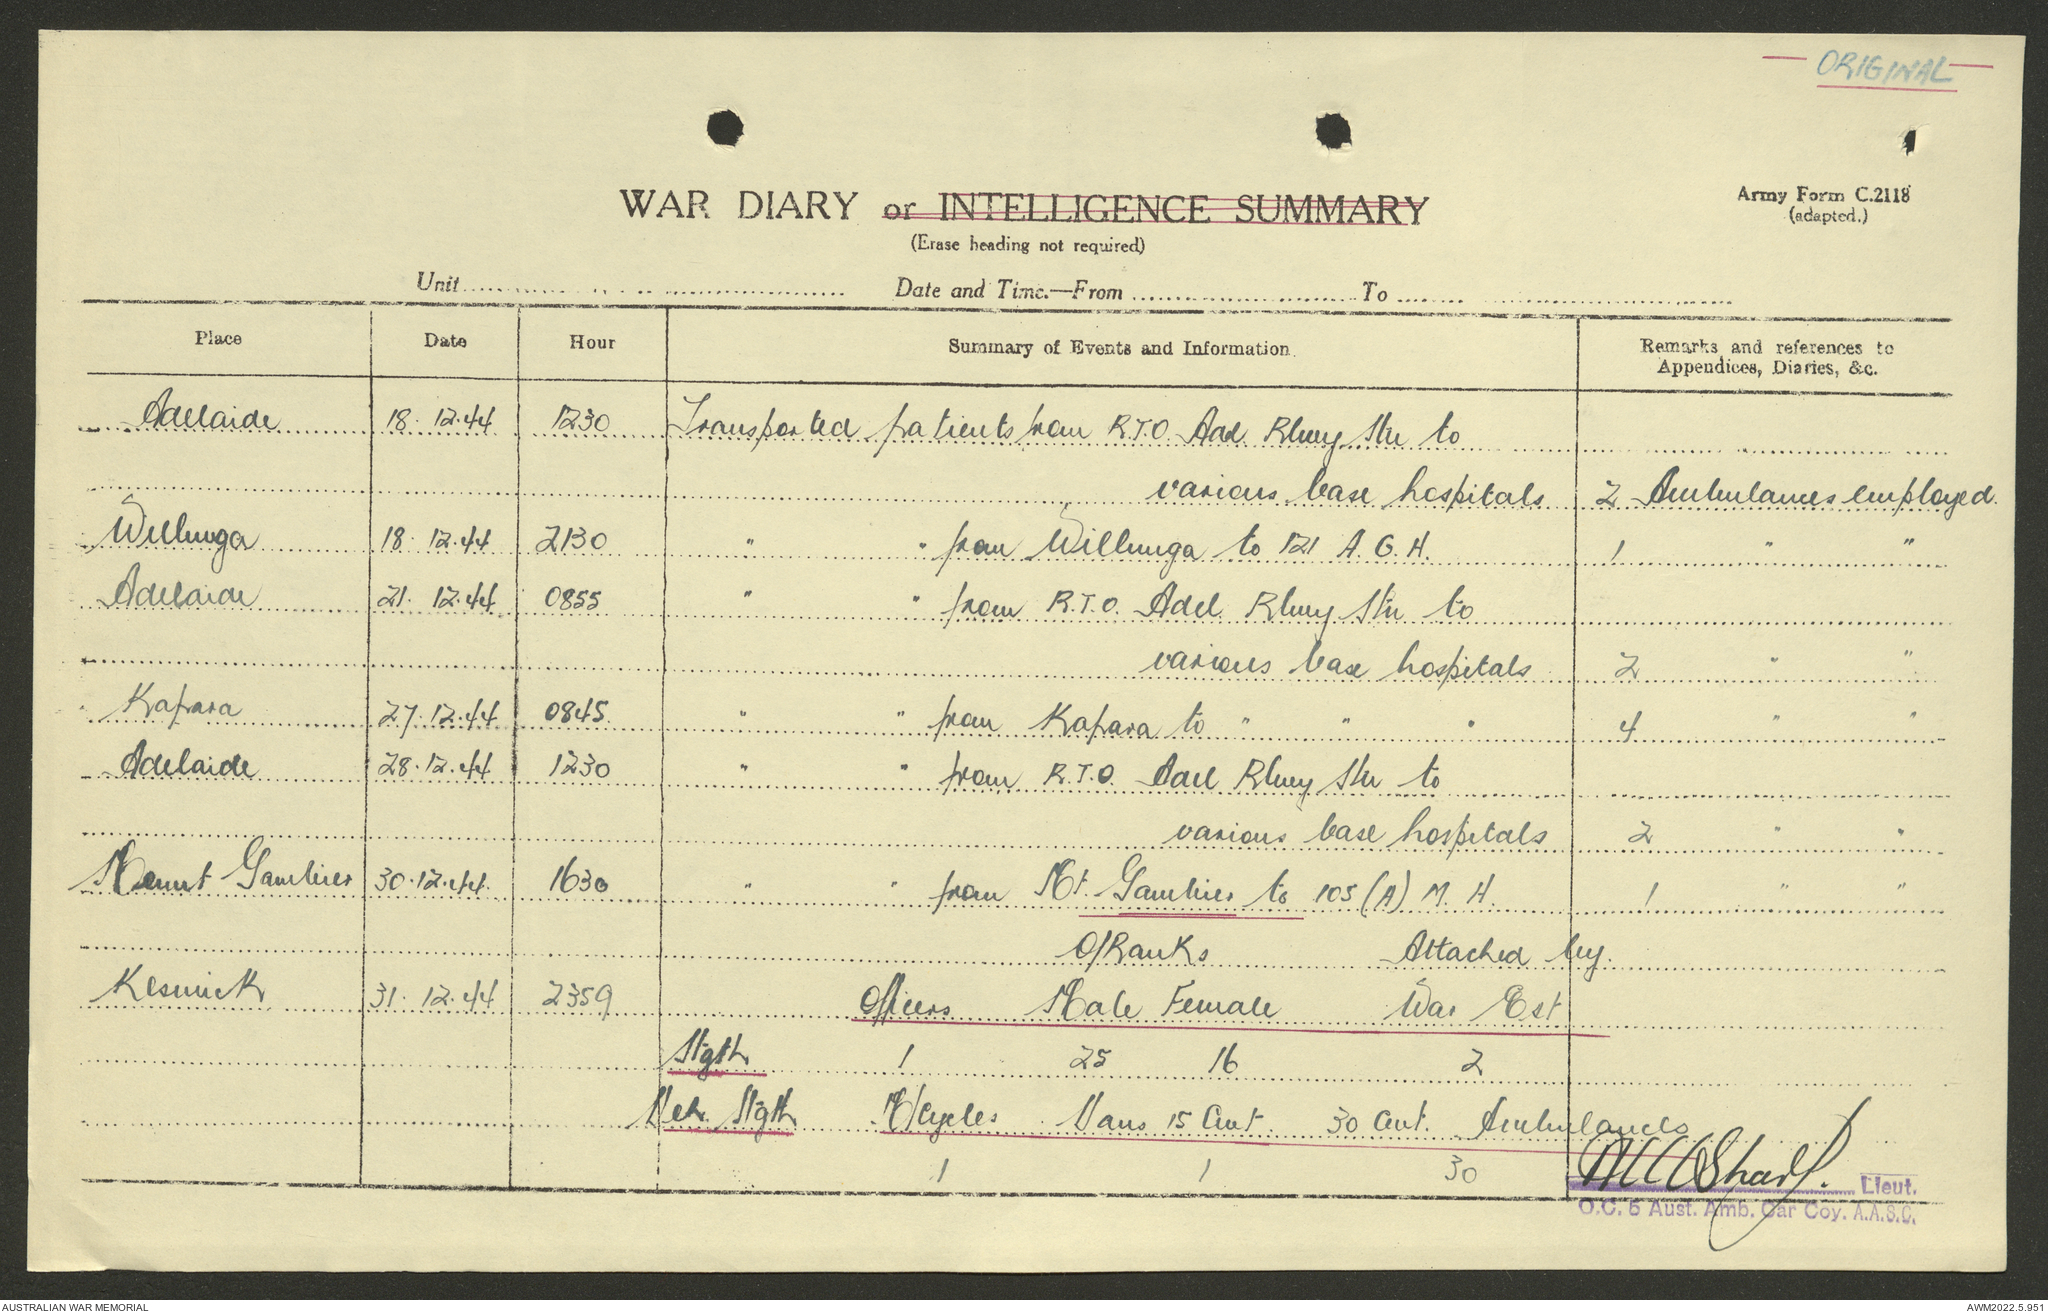 ORIGINAL
WAR DIARY or INTELLIGENCE SUMMARY
Army Form C.2118
(adapted.)
(Erase heading not required)
Unit Date and Time.—From To
Place Date Hour Summary of Events and Information Remarks and references to
Appendices, Diaries, &c.
Adelaide 18.12.44 1230 Transported patients from R.T.O. Adel. Rlwy Stn to
various base hospitals 2 Ambulances employed.
Willunga 18.12.44 2130 " " from Willunga to 121 A.G.H. 1 " "
Adelaide 21.12.44 0855 " " from R.T.O. Adel Rlwy Stn to
various base hospitals 2 " "
Kapara 27.12.44 0845 " " from Kapara to " " " 4 " "
Adelaide 28.12.44 1230 " " from R.T.O. Adel Rlwy Stn to
various base hospitals 2 " "
Mount Gambier 30.12.44 1630 " " from Mt. Gambier to 105 (A) M.H. 1 " "
O/Ranks Attached by
Keswick 31.12.44 2359 Officers Male Female War Est
Stgth 1 25 16 2
Veh. Stgth M/Cycles Vans 15 Cwt 30 Cwt. Ambulances
1 1 30
Lieut.
O.C. 5 Aust. Amb. Car Coy. A.A.S.C.
AUSTRALIAN WAR MEMORIAL AWM2022.5.951